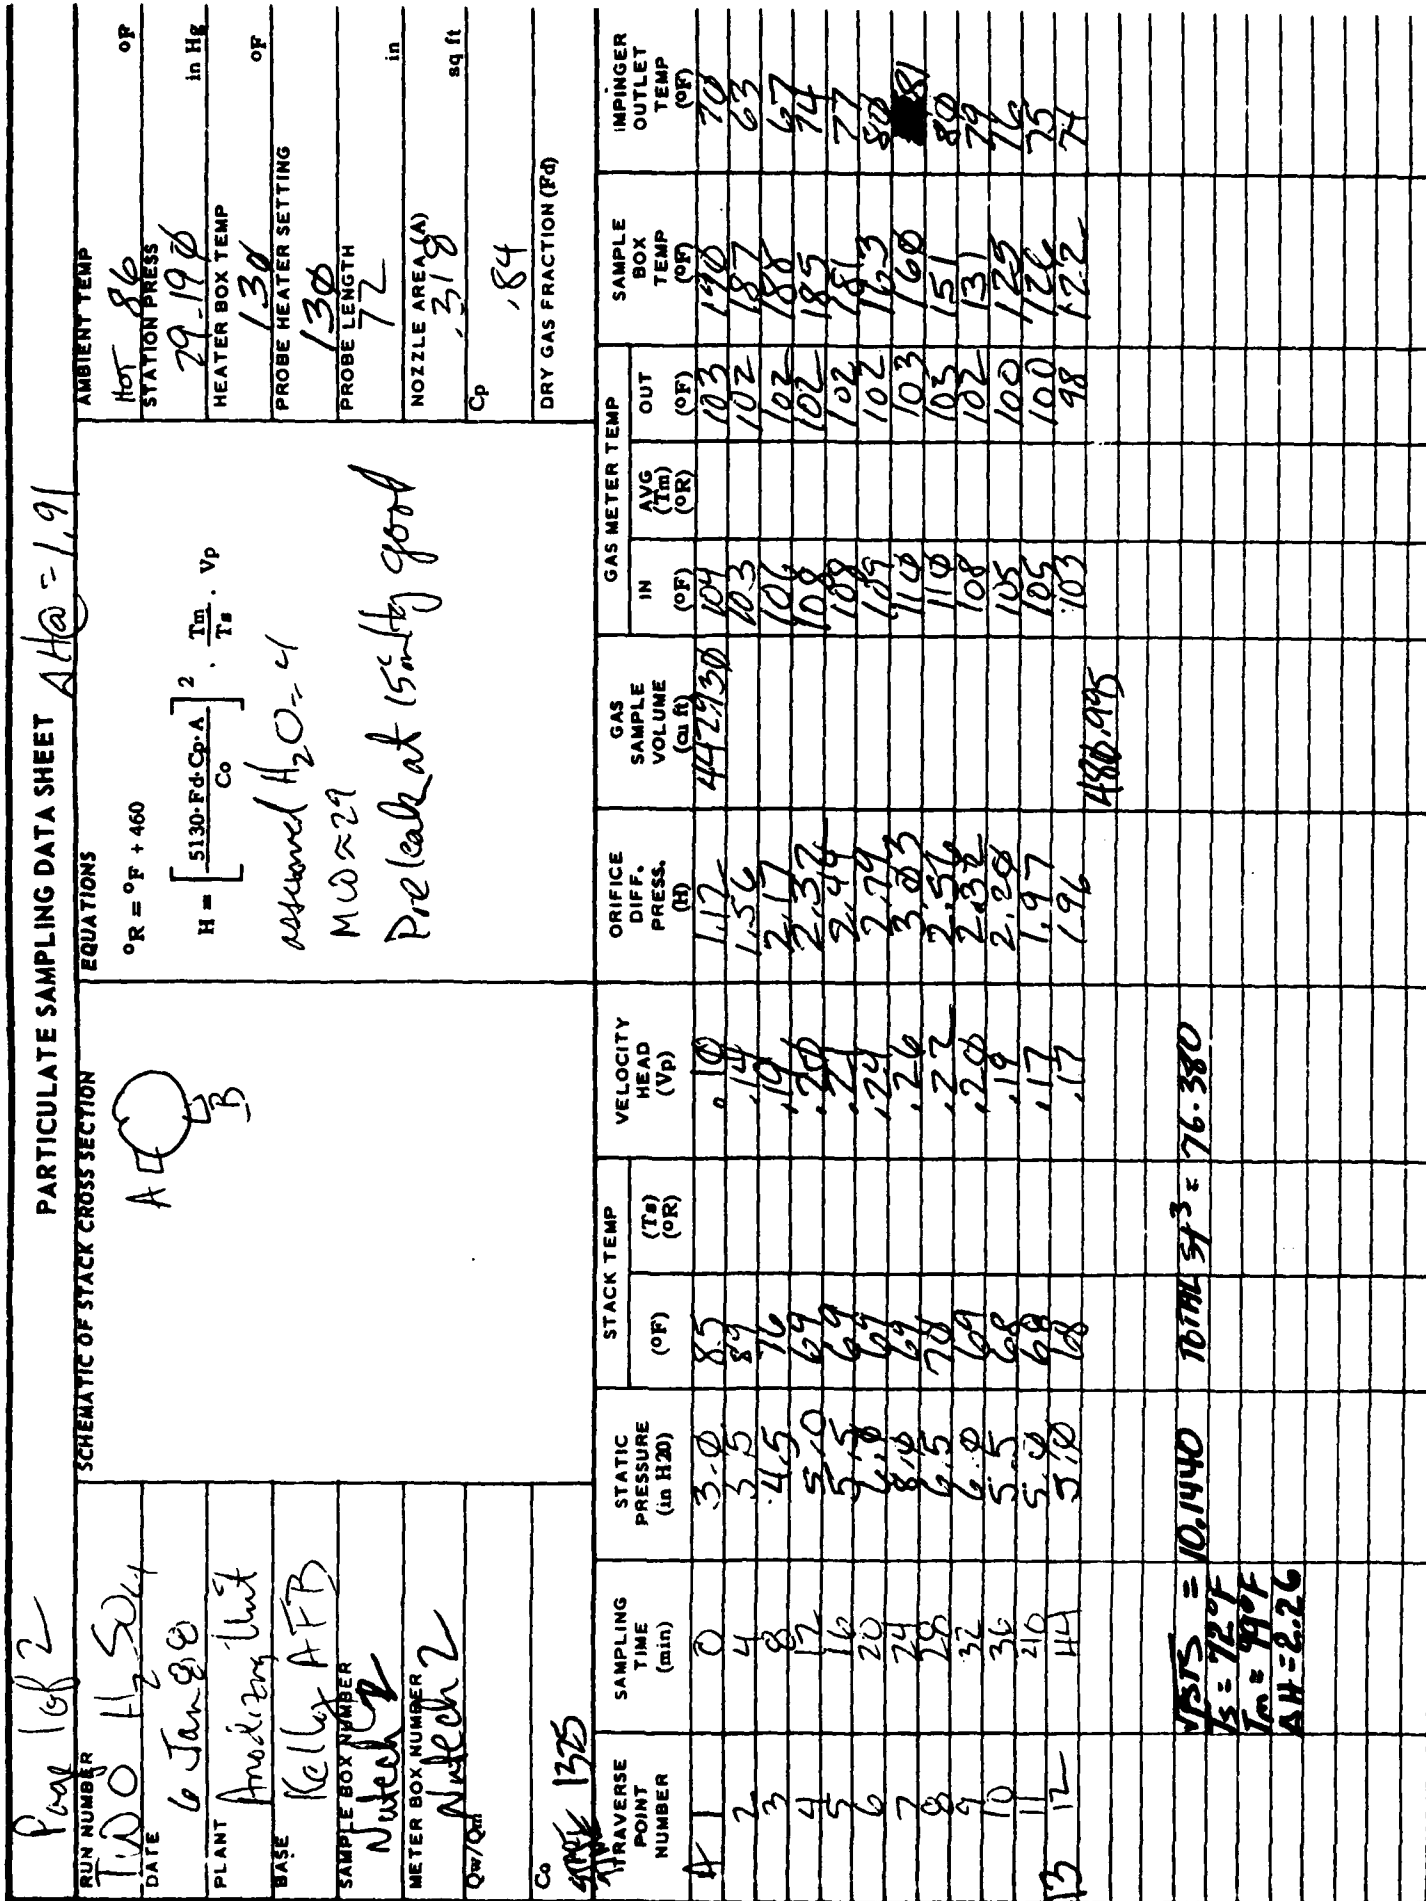 Page 1 of 2
PARTICULATE SAMPLING DATA SHEET ΔH@ = 1.91
RUN NUMBER
TWO H2SO4
DATE
6 Jan 88
PLANT
Anodizing Unit
BASE
Kelly AFB
SAMPLE BOX NUMBER
Nutech 2
METER BOX NUMBER
Nutech 2
Qw/Qm
Co
1375
SCHEMATIC OF STACK CROSS SECTION
A
B
EQUATIONS
°R = °F + 460
H = [5130·Fd·Cp·A / Co]² · Tm/Ts · Vp
assumed H2O = 4
MW ≈ 29
Pre leak at 15 in Hg good
AMBIENT TEMP
HOT 86 °F
STATION PRESS
29.190 in Hg
HEATER BOX TEMP
130 °F
PROBE HEATER SETTING
130
PROBE LENGTH
72 in
NOZZLE AREA (A)
.318 sq ft
Cp
.84
DRY GAS FRACTION (Fd)
TRAVERSE POINT NUMBER | SAMPLING TIME (min) | STATIC PRESSURE (in H20) | STACK TEMP (°F) | (Ts) (°R) | VELOCITY HEAD (Vp) | ORIFICE DIFF. PRESS. (H) | GAS SAMPLE VOLUME (cu ft) | GAS METER TEMP IN (°F) | AVG (Tm) (°R) | OUT (°F) | SAMPLE BOX TEMP (°F) | IMPINGER OUTLET TEMP (°F)
A 1 0 3.0 85 .10 1.17 442.930 104 103 190 70
2 4 3.5 89 .14 1.56 103 102 187 63
3 8 4.5 76 .19 2.17 106 102 188 67
4 12 5.0 69 .20 2.32 108 102 185 74
5 16 5.5 69 .21 2.44 108 102 181 77
6 20 6.0 69 .24 2.79 109 102 163 80
7 24 8.0 69 .26 3.03 110 103 160 81
8 28 6.5 70 .22 2.56 110 103 151 80
9 32 6.0 69 .20 2.32 108 102 131 79
10 36 5.5 68 .19 2.20 105 100 125 76
11 40 5.0 68 .17 1.97 105 100 126 75
12 44 5.0 68 .17 1.96 103 98 122 74
480.995
√PSTS = 10.1440 TOTAL sf³ = 76.380
Ts = 72°F
Tm = 99°F
ΔH = 2.26